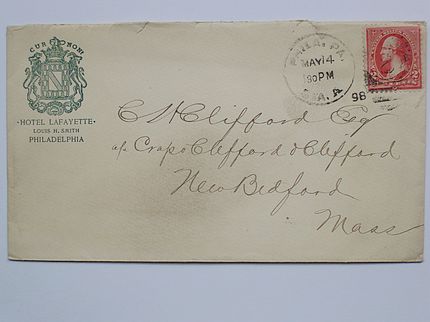 CUR NON
HOTEL LAFAYETTE
LOUIS H. SMITH
PHILADELPHIA
PHILA. PA.
MAY 14
30 PM
STA. A
98
C H Clifford Esq
Crapo Clifford & Clifford
New Bedford
Mass